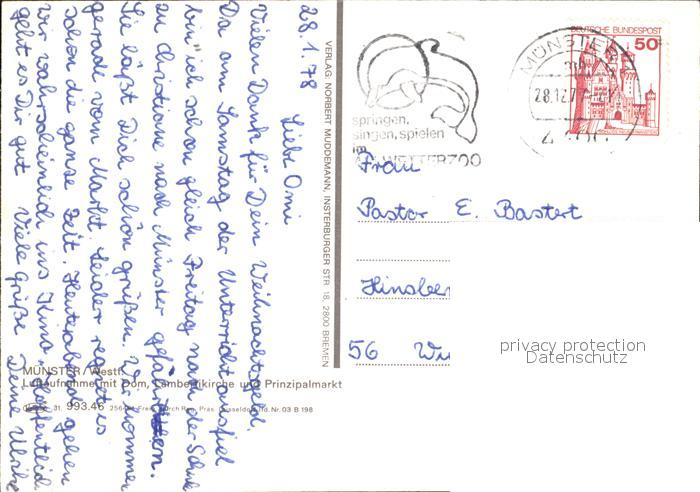 28.1.78
Liebe Omi
Vielen Dank für Dein Weihnachtsgeld.
Da am Samstag der Unterricht ausfiel
bin ich schon gleich Freitag nach der Schule
zu Christiane nach Münster gefahren.
Sie läßt Dich schön grüßen. Wir kommen
gerade vom Markt. Leider regnet es
schon die ganze Zeit. Heute abend gehen
wir wahrscheinlich ins Kino. Hoffentlich
geht es Dir gut Viele Grüße Deine Ulrike
MÜNSTER / Westf.
Luftaufnahme mit Dom, Lambertikirche und Prinzipalmarkt
993.46
Nr. 03 B 198
VERLAG: NORBERT MUDDEMANN, INSTERBURGER STR. 18, 2800 BREMEN
springen,
singen, spielen
im
DEUTSCHE BUNDESPOST
50
MÜNSTER
28.12.7
Frau
Pastor E. Bastert
Hinsber
56 Wu
privacy protection
Datenschutz